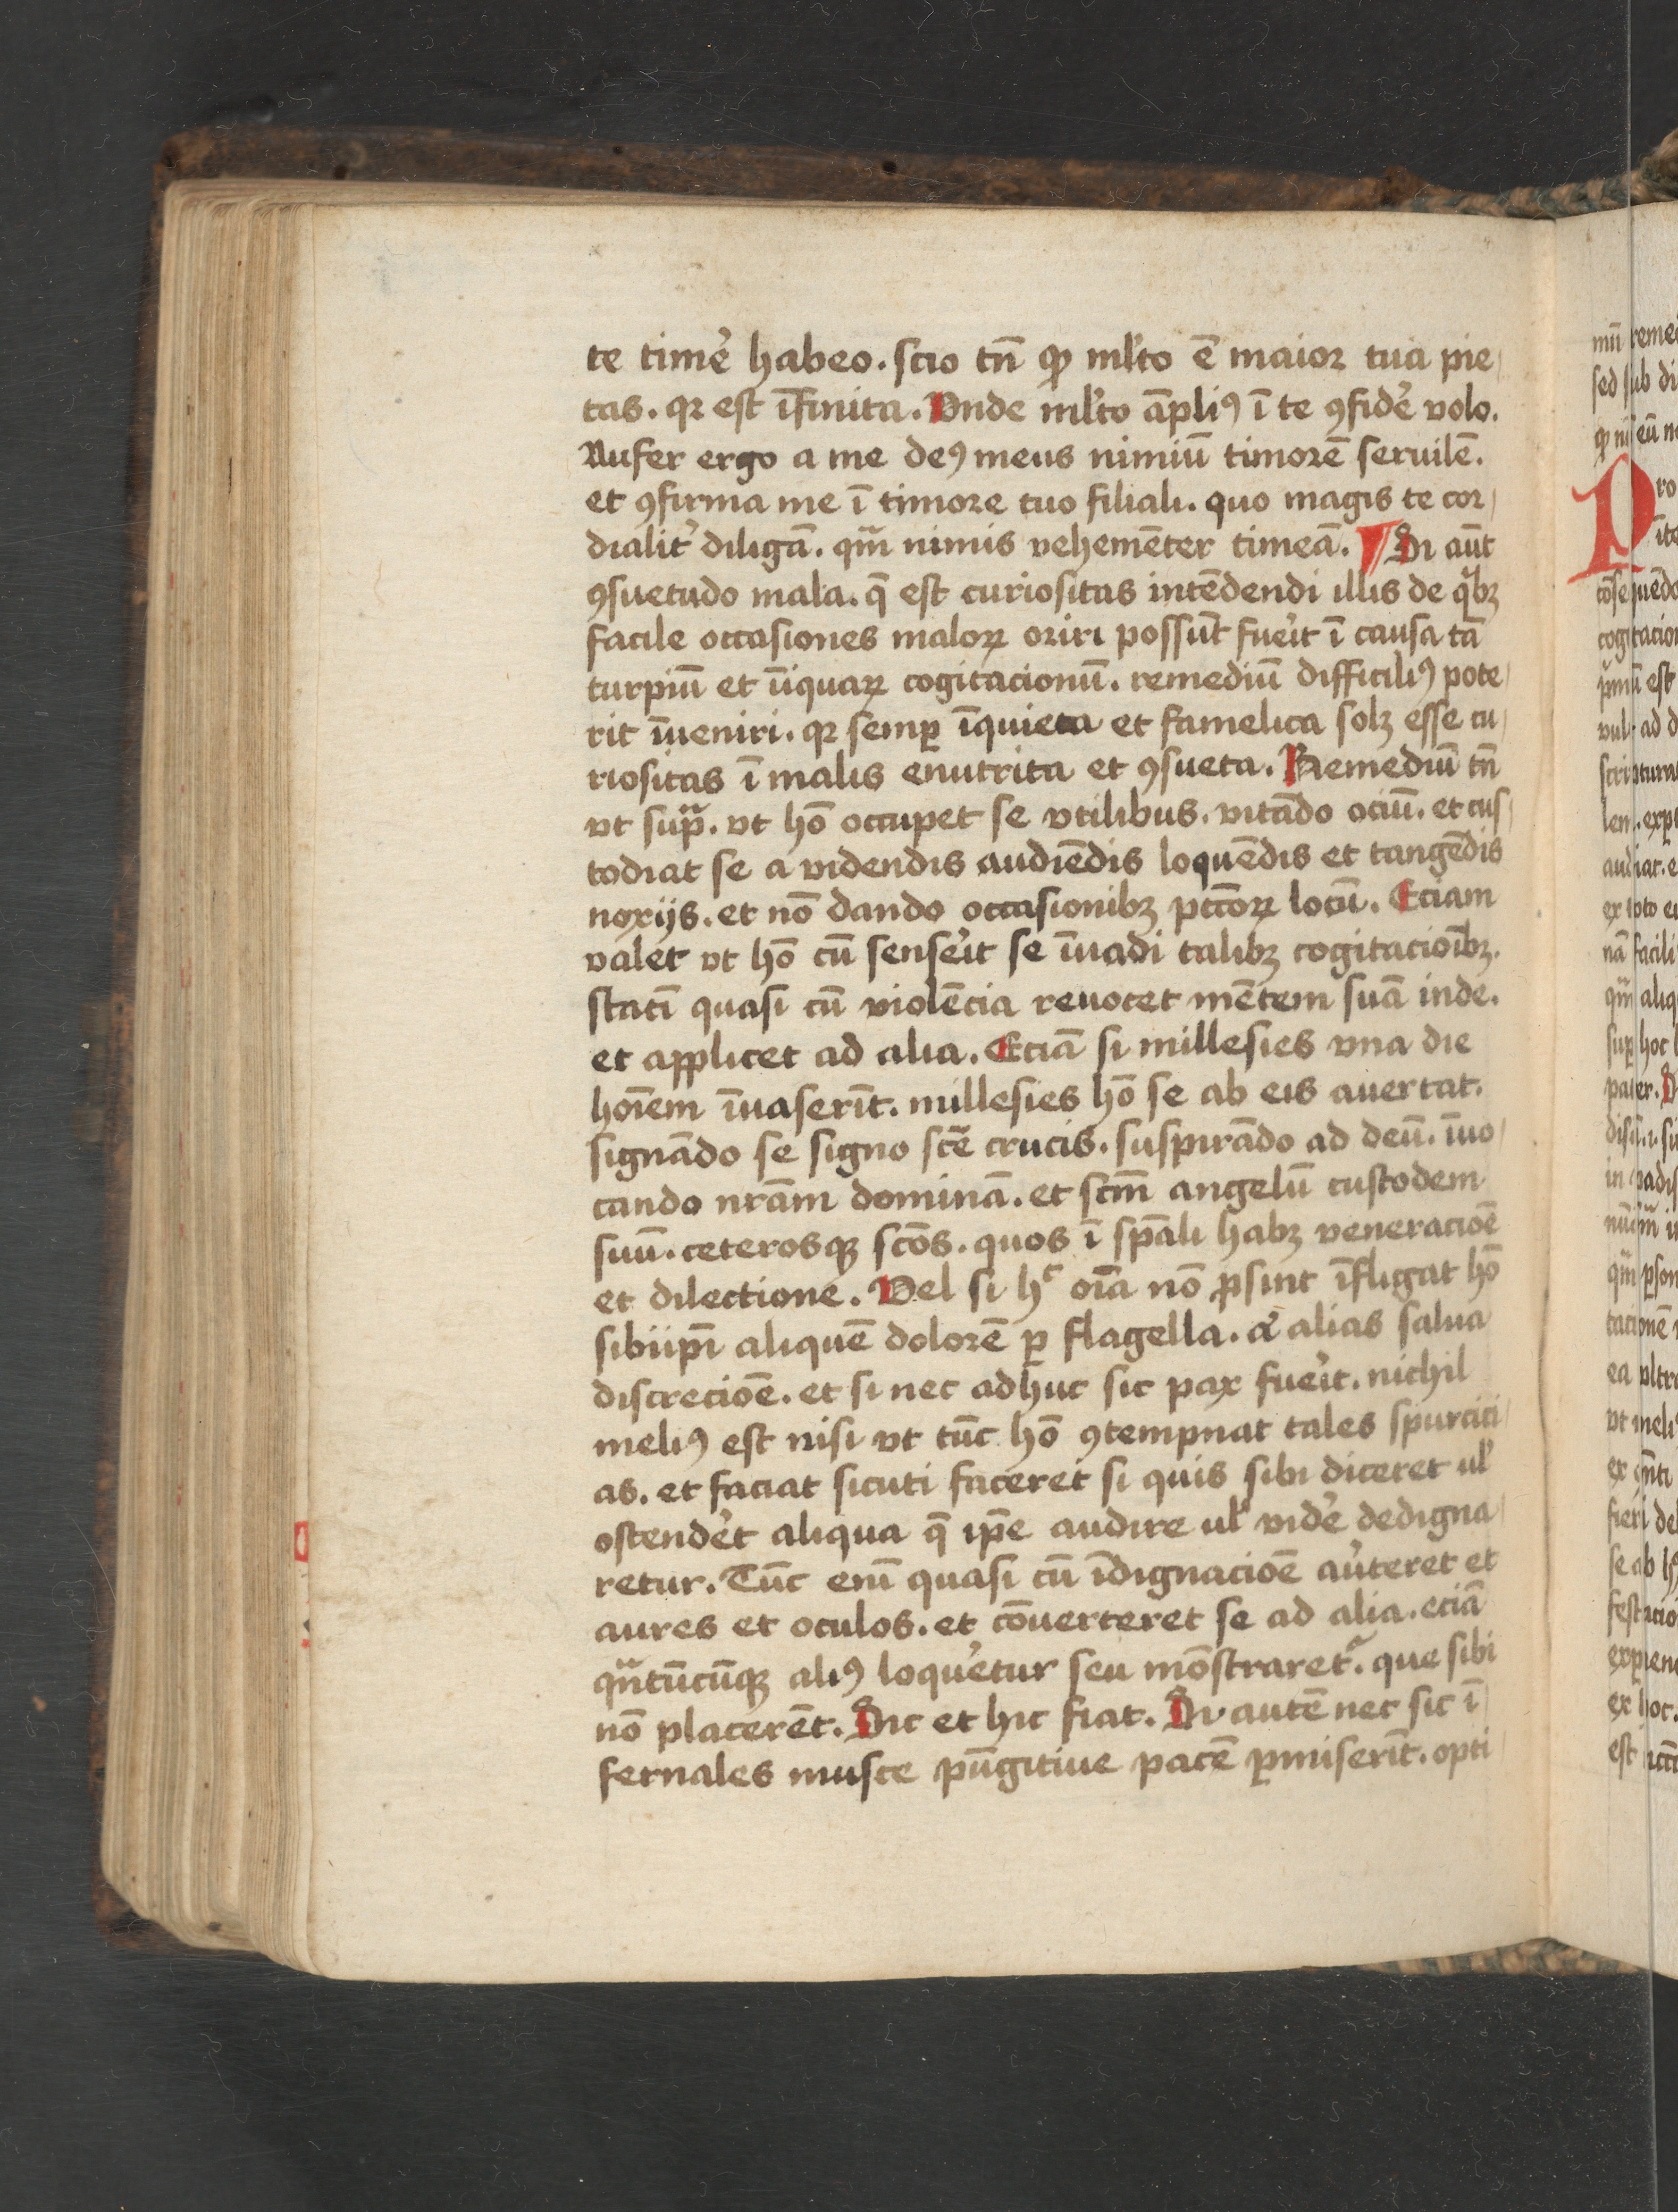 te time᷑ habeo. scio tn̄ ꝙ ml̛to ē maior tua pie
tas. qꝛ est īfinita. Vnde ml̛to āpliꝰ ī te ꝯfide᷑ volo.
Aufer ergo a me deꝰ meus nimiū timorē seruilē.
et ꝯfirma me ī timore tuo filiali. quo magis te cor
dialit᷑ diligā. qm̄ nimis vehemēter timeā. ¶ Si aūt
ꝯsuetudo mala. q̄ est curiositas intēdendi illis de qͥbꝫ
facile occasiones maloꝝ oriri possūt fue᷑it ī causa tā
turpiū et īiquaꝝ cogitacionū. remediū difficiliꝰ pote
rit īueniri. qꝛ semꝑ īquieta et famelica solꝫ esse cu
riositas ī malis enutrita et ꝯsueta. Remediū tn̄
vt supᷓ. vt hō occupet se vtilibus. vitādo ociū. et cus
todiat se a videndis audiēdis loquēdis et tangēdis
noxijs. et nō dando occasionibꝫ pctōꝝ locū. Eciam
valet vt hō cū sense᷑it se īuadi talibꝫ cogitacioībꝫ.
statī quasi cū violēcia reuocet mētem suā inde.
et applicet ad alia. Eciā si millesies vna die
hoīem īuaserīt. millesies hō se ab eis auertat.
signādo se signo scē crucis. suspirādo ad deū. īuo
cando nrām dominā. et scm̄ angelū custodem
suū. ceterosqꝫ scōs. quos ī spāli habꝫ veneracioē
et dilectione. Vel si hᶜ oīa nō ꝓsint īfligat hō
sibiip̄i aliquē dolorē ꝑ flagella. a᷑ alias salua
discrecioē. et si nec adhuc sic pax fue᷑it. nichil
meliꝰ est nisi vt tūc hō ꝯtempnat tales spurcici
as. et faciat sicuti faceret si quis sibi diceret ul̛
ostende᷑t aliqua q̄ ip̄e audire ul̛ vide᷑ dedigna
retur. Tūc enī quasi cū īdignacioē au᷑teret et
aures et oculos. et cōuerteret se ad alia. eciā
qᷓntūcūqꝫ aliꝰ loque᷑tur seu mōstraret᷑. que sibi
nō placerēt. Sic et hic fiat. Si autē nec sic ī
fernales musce pūgitiue pacē ꝑmiserīt. opti